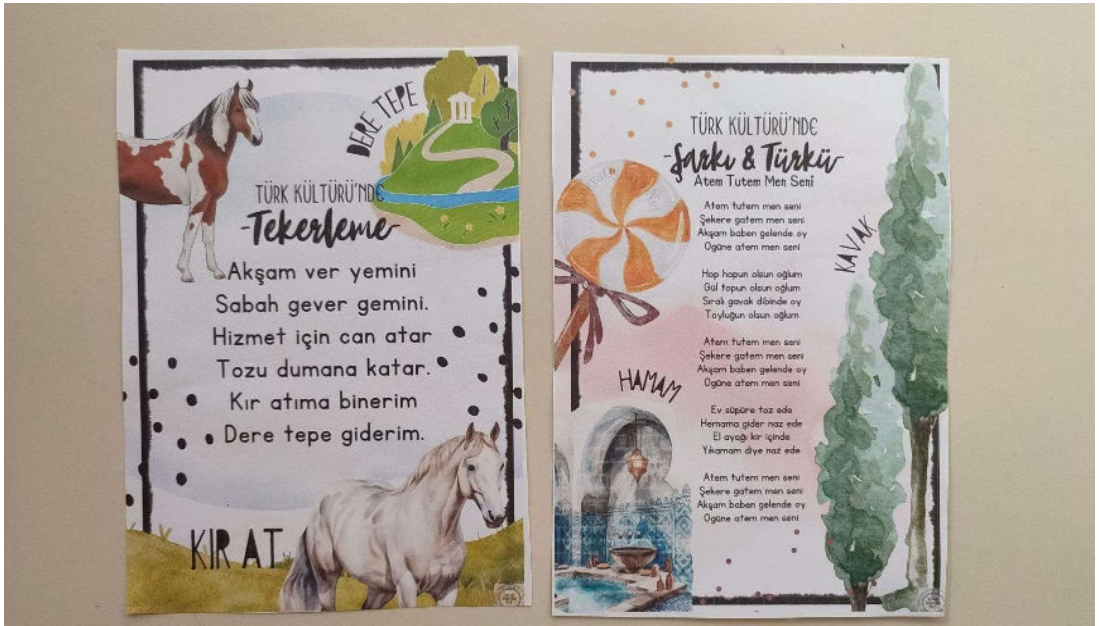 DERE TEPE
TÜRK KÜLTÜRÜ'NDE
-Tekerleme-
Akşam ver yemini
Sabah gever gemini.
Hizmet için can atar
Tozu dumana katar.
Kır atıma binerim
Dere tepe giderim.
KIR AT
TÜRK KÜLTÜRÜ'NDE
-Şarkı & Türkü-
Atem Tutem Men Seni
Atem tutem men seni
Şekere gatem men seni
Akşam baben gelende oy
Ogüne atem men seni
Hop hopun olsun oğlum
Gül topun olsun oğlum
Sıralı gavak dibinde oy
Toyluğun olsun oğlum
Atem tutem men seni
Şekere gatem men seni
Akşam baben gelende oy
Ogüne atem men seni
Ev süpüre toz ede
Hemama gider naz ede
El ayağı kir içinde
Yıkamam diye naz ede
Atem tutem men seni
Şekere gatem men seni
Akşam baben gelende oy
Ogüne atem men seni
KAVAK
HAMAM